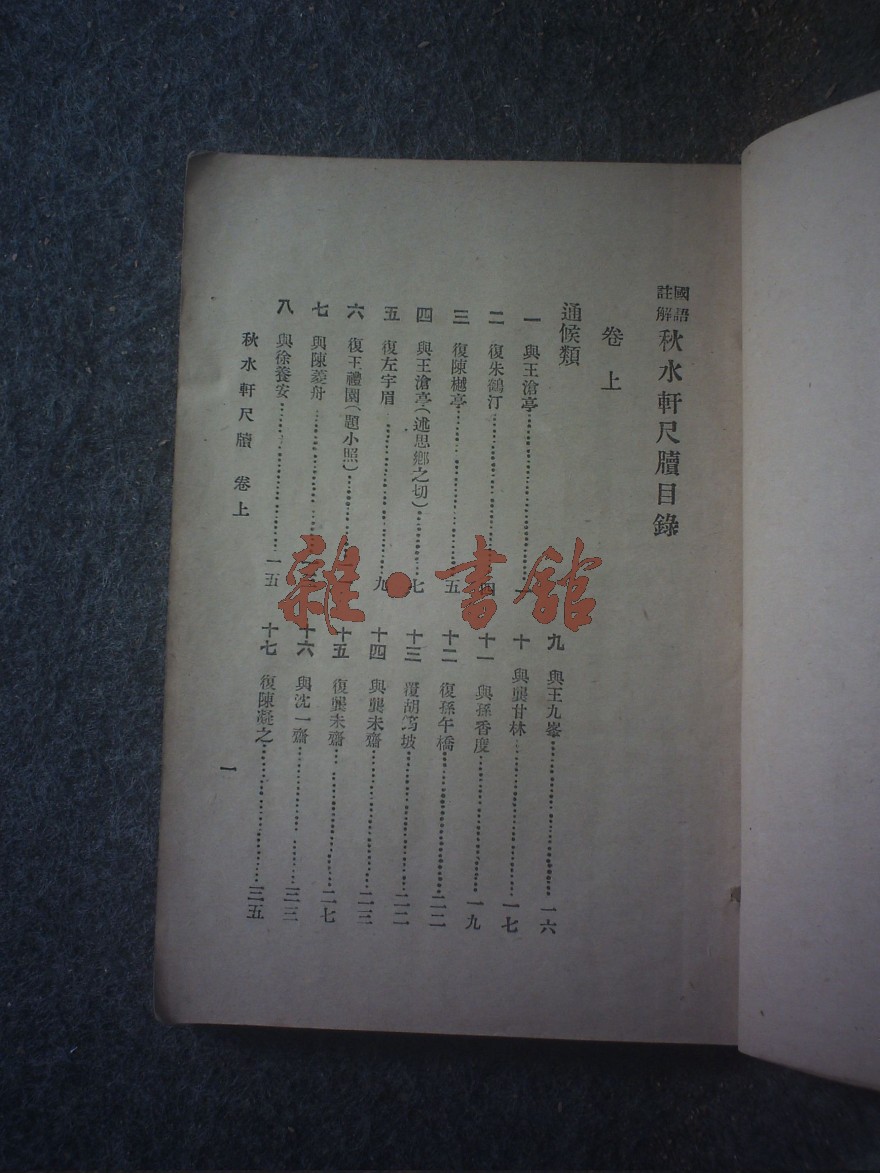 國語註解秋水軒尺牘目錄
卷上
通候類
一 與王滄亭……一
二 復朱鶴汀……四
三 復陳樾亭……五
四 與王滄亭(述思鄉之切)……七
五 復左宇眉……九
六 復王禮園(題小照)……
七 與陳菱舟……
八 與徐養安……一五
九 與王九峯……一六
十 與龔甘林……一七
十一 與孫香度……一九
十二 復孫午橋……二二
十三 覆胡篤坡……二二
十四 與龔未齋……二三
十五 復龔未齋……二七
十六 與沈一齋……三三
十七 復陳凝之……三五
秋水軒尺牘 卷上
一
雜·書館